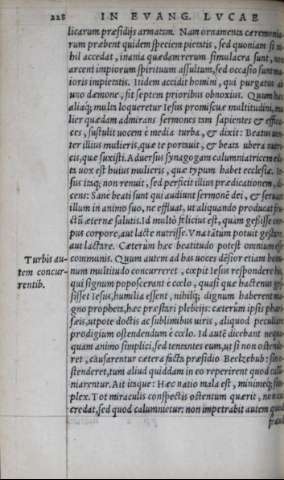 228 IN EVANG. LVCAE
licarum præsidijs armatum. Nam ornamenta cæremonia-
rum præbent quidem speciem pietatis, sed quoniam si ni-
hil accedat, inania quædam rerum simulacra sunt, non
arcent impiorum spirituum assultum, sed occasio sunt ma-
ioris impietatis. Itidem accidit homini, qui purgatus ab
uno dæmone, fit septem prioribus obnoxius. Quum hæc
aliaq; multa loqueretur Iesus promiscuæ multitudini, mu-
lier quædam admirans sermones tam sapientes & effica-
ces, sustulit uocem è media turba, & dixit: Beatus uen-
ter illius mulieris, quæ te portauit, & beata ubera
cis, quæ suxisti. Aduersus synagogam calumniatricem
ts uox est huius mulieris, quæ typum habet ecclesiæ. Ie-
sus itaq; non renuit, sed perficit illius prædicationem,
cens: Sanè beati sunt qui audiunt sermonē dei, & seruant
illum in animo suo, ne effluat, ut aliquando producat fru-
ctū æternæ salutis. Id multò fœlicius est, quàm gessisse cor-
pus corpore, aut lacte nutrisse. Vna tātum potuit gestare
aut lactare. Cæterùm hæc beatitudo potest omnium esse
Turbis au- communis. Quum autem ad has uoces dēsior etiam homi-
tem concur- num multitudo concurreret, cœpit Iesus respondere his,
rentib. qui signum poposcerant è cœlo, quasi quæ hactenus ges-
sisset Iesus, humilia essent, nihilq; dignum haberent ma-
gno propheta, hæc præstari plebeijs: cæterùm ipsis phari-
sæis, utpote doctis ac sublimibus uiris, aliquod peculiare
prodigium ostendendum è cœlo. Id autē dicebant non
quàm animo simplici, sed tentantes eum, ut si non ostende-
ret, causarentur cætera facta præsidio Beelzebub: sin o-
stenderet, tum aliud quiddam in eo reperirent quod calū-
niarentur. Ait itaque: Hæc natio mala est, minimeq; sim-
plex. Tot miraculis conspectis ostentum quærit, non ut
credat, sed quod calumnietur: non impetrabit autem quod